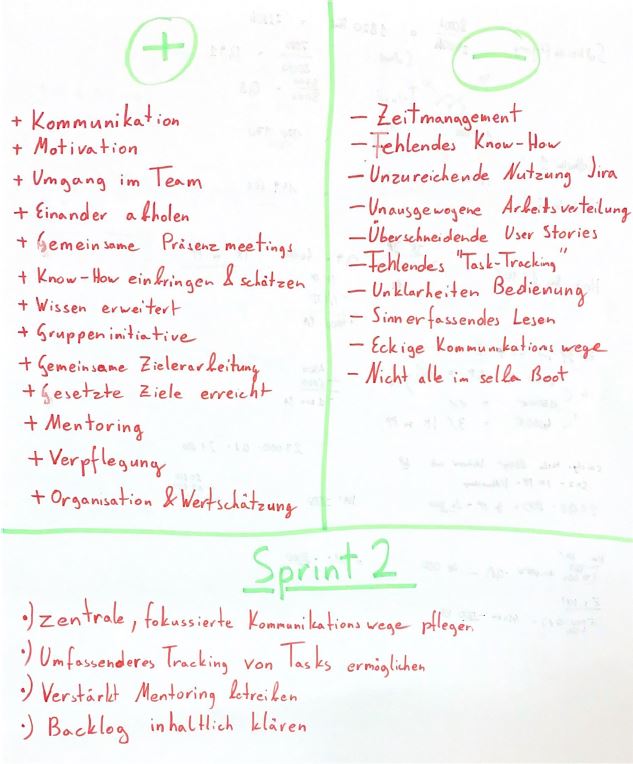 +
+ Kommunikation
+ Motivation
+ Umgang im Team
+ Einander abholen
+ Gemeinsame Präsenzmeetings
+ Know-How einbringen & schätzen
+ Wissen erweitert
+ Gruppeninitiative
+ Gemeinsame Zielerarbeitung
+ Gesetzte Ziele erreicht
+ Mentoring
+ Verpflegung
+ Organisation & Wertschätzung
–
– Zeitmanagement
– Fehlendes Know-How
– Unzureichende Nutzung Jira
– Unausgewogene Arbeitsverteilung
– Überschneidende User Stories
– Fehlendes "Task-Tracking"
– Unklarheiten Bedienung
– Sinnerfassendes Lesen
– Eckige Kommunikationswege
– Nicht alle im selba Boot
Sprint 2
•) Zentrale, fokussierte Kommunikationswege pflegen
•) Umfassenderes Tracking von Tasks ermöglichen
•) Verstärkt Mentoring betreiben
•) Backlog inhaltlich klären